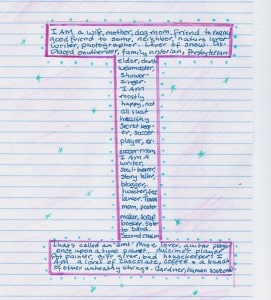 I AM a wife, mother, dog-mom, friend to many,
good friend to some, neighbor, nature lover,
writer, photographer. Lover of snow. Dis-
placed southerner, family historian, Presbyterian
elder, dave
webmaster,
shower-
singer.
I AM
mostly
happy, not
all that
healthy
Secret keep-
er, soccer
player, er-
soccer mom
I AM A
writer,
soul-bearer,
story teller,
blogger,
humorist, for
lamor. Texas
mom, poster
maker, scrap
booker, sister
to band.
Second Chairs
that's called an "ant." Music lover, guitar player
once upon a time, planet, dulcimer player,
pot painter, gift giver, bad housekeeper! I
AM a lover of chocolate, coffee & a bunch
of other unhealthy things. Gardner,